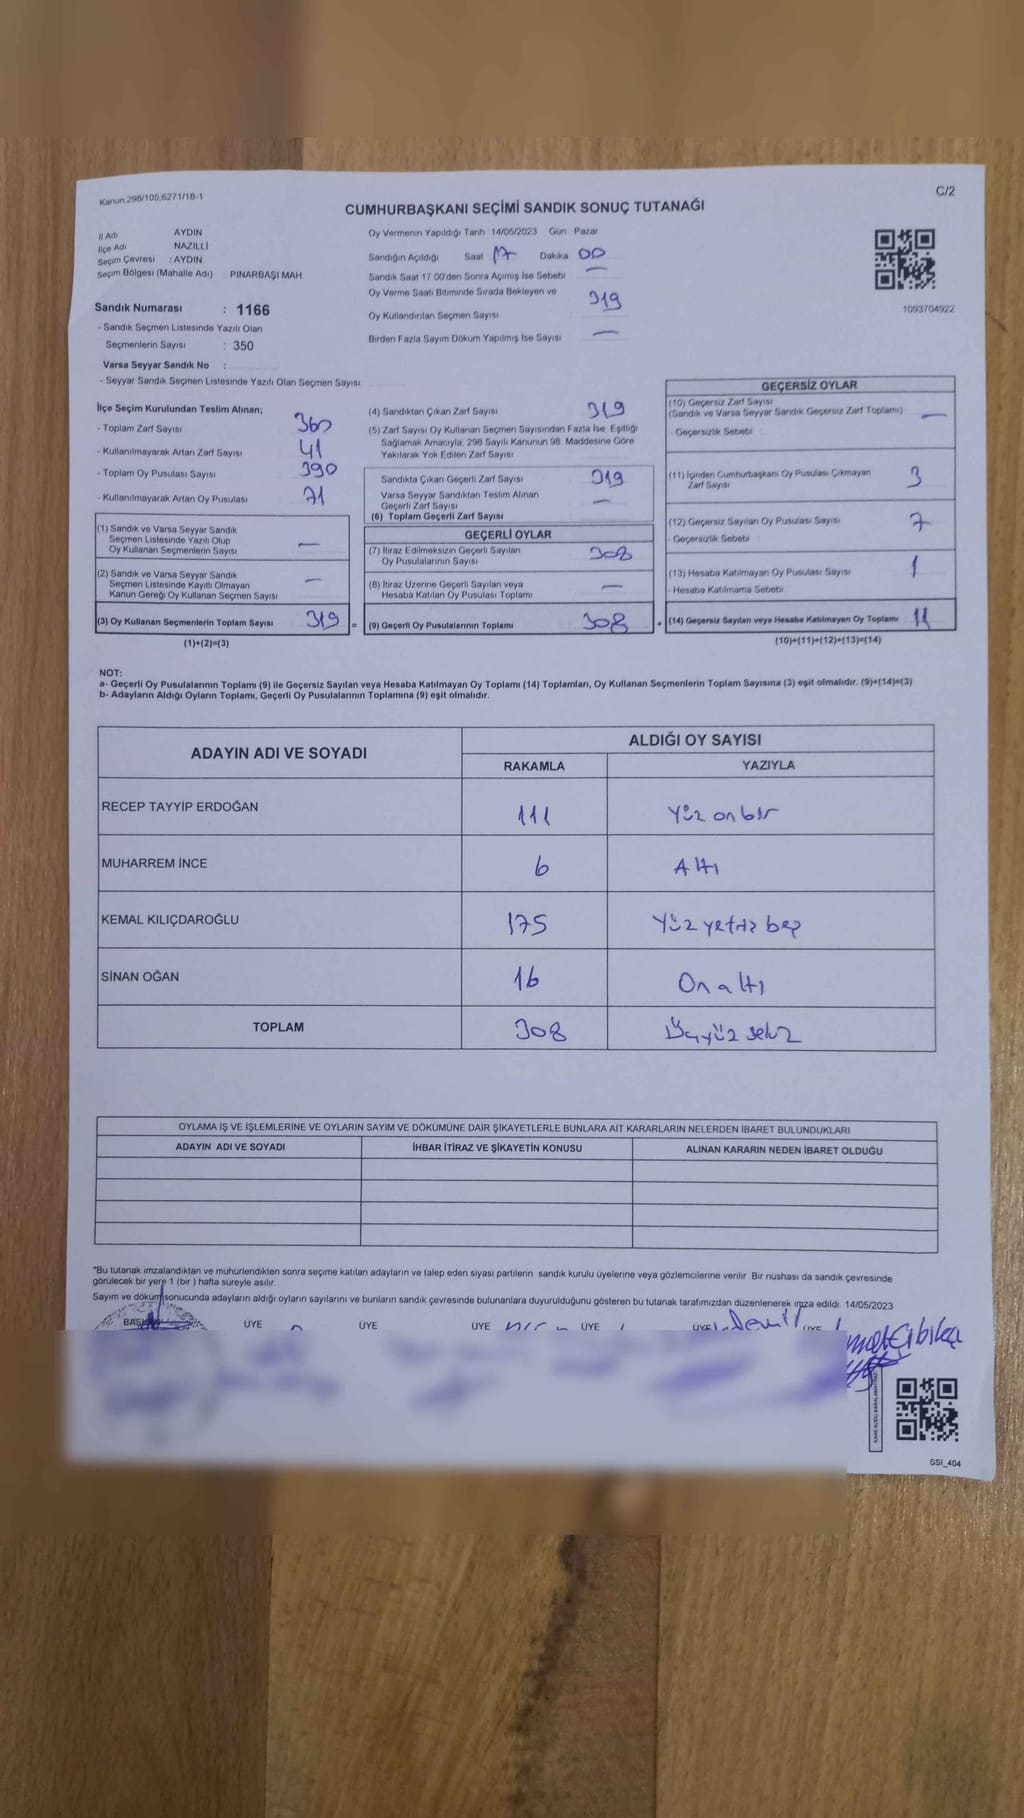 Kanun.298/105,6271/18-1
C/2
CUMHURBAŞKANI SEÇİMİ SANDIK SONUÇ TUTANAĞI
İl Adı AYDIN
İlçe Adı NAZİLLİ
Seçim Çevresi : AYDIN
Seçim Bölgesi (Mahalle Adı) : PINARBAŞI MAH
Oy Vermenin Yapıldığı Tarih 14/05/2023 Gün Pazar
Sandığın Açıldığı Saat 17 Dakika 00
Sandık Saat 17.00'den Sonra Açımış İse Sebebi —
Oy Verme Saati Bitiminde Sırada Bekleyen ve
Oy Kullandırılan Seçmen Sayısı 319
Birden Fazla Sayım Döküm Yapılmış İse Sayısı —
1093704922
Sandık Numarası : 1166
- Sandık Seçmen Listesinde Yazılı Olan
Seçmenlerin Sayısı : 350
Varsa Seyyar Sandık No :
- Seyyar Sandık Seçmen Listesinde Yazılı Olan Seçmen Sayısı
İlçe Seçim Kurulundan Teslim Alınan;
- Toplam Zarf Sayısı 360
- Kullanılmayarak Artan Zarf Sayısı 41
- Toplam Oy Pusulası Sayısı 390
- Kullanılmayarak Artan Oy Pusulası 71
(1) Sandık ve Varsa Seyyar Sandık
Seçmen Listesinde Yazılı Olup
Oy Kullanan Seçmenlerin Sayısı —
(2) Sandık ve Varsa Seyyar Sandık
Seçmen Listesinde Kayıtlı Olmayan
Kanun Gereği Oy Kullanan Seçmen Sayısı —
(3) Oy Kullanan Seçmenlerin Toplam Sayısı 319 =
(1)+(2)=(3)
(4) Sandıktan Çıkan Zarf Sayısı 319
(5) Zarf Sayısı Oy Kullanan Seçmen Sayısından Fazla İse, Eşitliği
Sağlamak Amacıyla, 298 Sayılı Kanunun 98. Maddesine Göre
Yakılarak Yok Edilen Zarf Sayısı
Sandıkta Çıkan Geçerli Zarf Sayısı 319
Varsa Seyyar Sandıktan Teslim Alınan
Geçerli Zarf Sayısı —
(6) Toplam Geçerli Zarf Sayısı
GEÇERLİ OYLAR
(7) İtiraz Edilmeksizin Geçerli Sayılan
Oy Pusulalarının Sayısı 308
(8) İtiraz Üzerine Geçerli Sayılan veya
Hesaba Katılan Oy Pusulası Toplamı —
(9) Geçerli Oy Pusulalarının Toplamı 308 +
GEÇERSİZ OYLAR
(10) Geçersiz Zarf Sayısı
(Sandık ve Varsa Seyyar Sandık Geçersiz Zarf Toplamı) —
- Geçersizlik Sebebi
(11) İçinden Cumhurbaşkanı Oy Pusulası Çıkmayan
Zarf Sayısı 3
(12) Geçersiz Sayılan Oy Pusulası Sayısı 7
- Geçersizlik Sebebi
(13) Hesaba Katılmayan Oy Pusulası Sayısı 1
- Hesaba Katılmama Sebebi
(14) Geçersiz Sayılan veya Hesaba Katılmayan Oy Toplamı 11
(10)+(11)+(12)+(13)=(14)
NOT:
a- Geçerli Oy Pusulalarının Toplamı (9) ile Geçersiz Sayılan veya Hesaba Katılmayan Oy Toplamı (14) Toplamları, Oy Kullanan Seçmenlerin Toplam Sayısına (3) eşit olmalıdır. (9)+(14)=(3)
b- Adayların Aldığı Oyların Toplamı, Geçerli Oy Pusulalarının Toplamına (9) eşit olmalıdır.
ADAYIN ADI VE SOYADI
ALDIĞI OY SAYISI
RAKAMLA YAZIYLA
RECEP TAYYİP ERDOĞAN 111 Yüz on bir
MUHARREM İNCE 6 Altı
KEMAL KILIÇDAROĞLU 175 Yüz yetmiş beş
SİNAN OĞAN 16 On altı
TOPLAM 308 Üçyüz sekiz
OYLAMA İŞ VE İŞLEMLERİNE VE OYLARIN SAYIM VE DÖKÜMÜNE DAİR ŞİKAYETLERLE BUNLARA AİT KARARLARIN NELERDEN İBARET BULUNDUKLARI
ADAYIN ADI VE SOYADI İHBAR İTİRAZ VE ŞİKAYETİN KONUSU ALINAN KARARIN NEDEN İBARET OLDUĞU
*Bu tutanak imzalandıktan ve mühürlendikten sonra seçime katılan adayların ve talep eden siyasi partilerin sandık kurulu üyelerine veya gözlemcilerine verilir. Bir nüshası da sandık çevresinde
görülecek bir yere 1 (bir) hafta süreyle asılır.
Sayım ve döküm sonucunda adayların aldığı oyların sayılarını ve bunların sandık çevresinde bulunanlara duyurulduğunu gösteren bu tutanak tarafımızdan düzenlenerek imza edildi. 14/05/2023
BAŞKAN ÜYE ÜYE ÜYE ÜYE ÜYE ÜYE
SSI_404